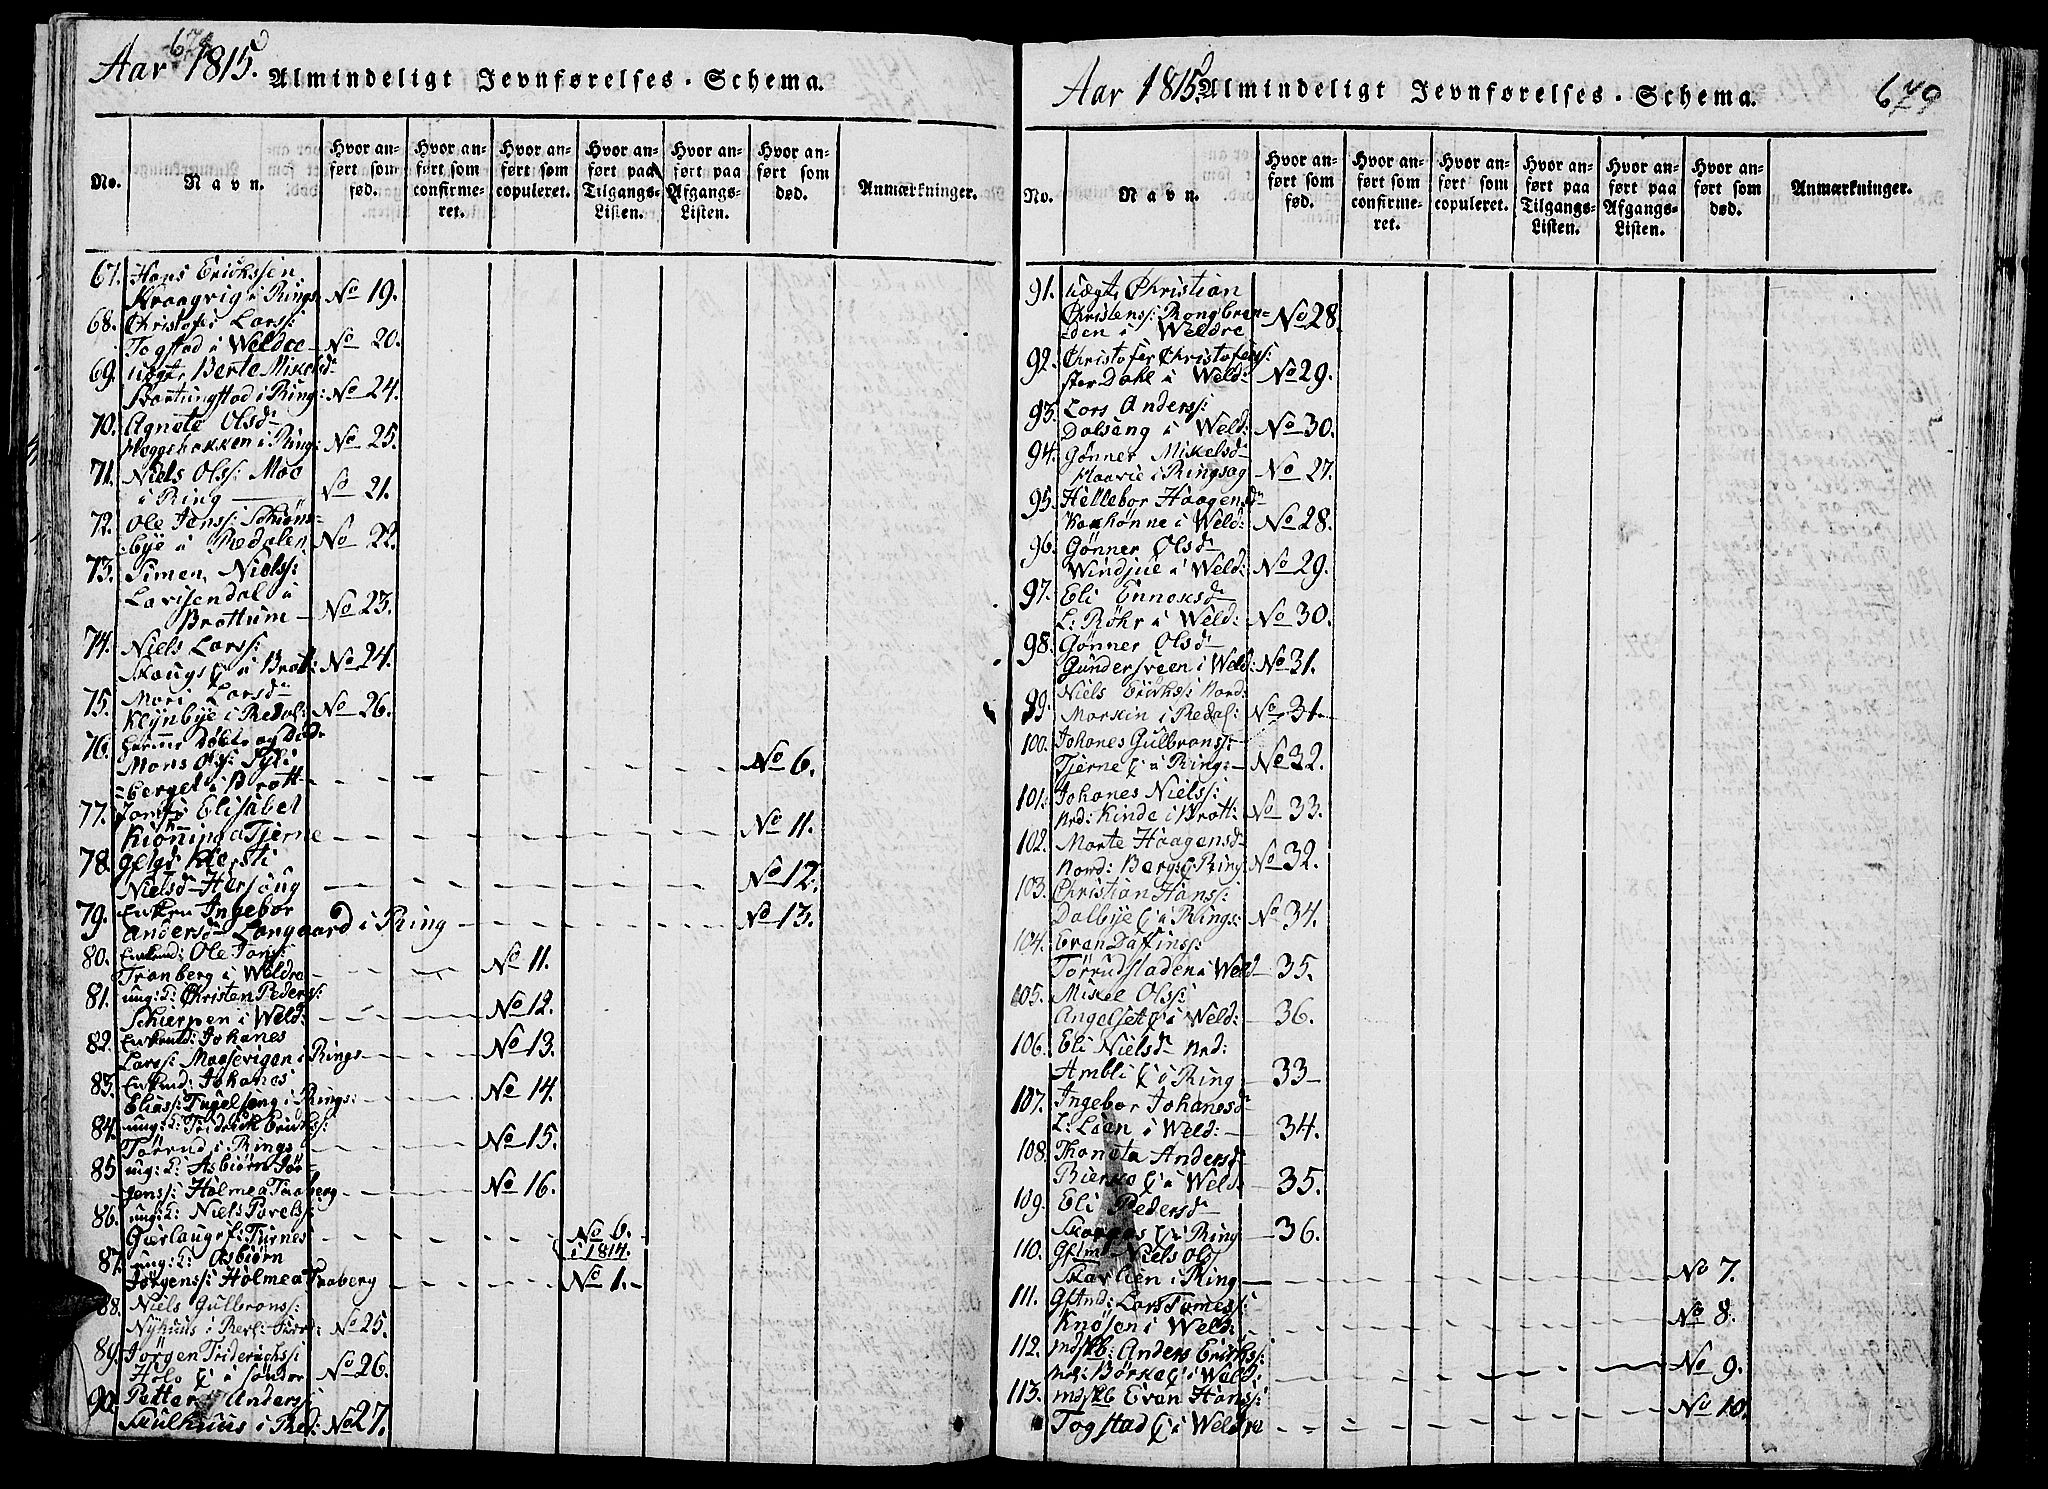 678
Aar 1815.
Almindeligt Jevnførelses-Schema.
No.
Navn.
Hvor an-
ført som
fød.
Hvor an-
ført som
confirme-
ret.
Hvor an-
ført som
copuleret.
Hvor an-
ført paa
Tilgangs-
Listen.
Hvor an-
ført paa
Afgangs-
Listen.
Hvor an-
ført som
død.
Anmærkninger.
67. Hans Erickssen
Kraagvig i Rings No 19.
68. Christofer Larss:
Togstad i Weldre No 20.
69. uægt, Berte Mikelsd
i Ring: No 24.
70. Agnete Olsd
Hæggebakken i Ring: No 25.
71. Niels Olss: Moe
i Ring No 21.
72. Ole Jenss: Schiøns=
bye i Redalen No 22.
73. Simen Nielss:
Larisendal i
Brottum No 23.
74. Niels Larss:
Skougs i Brott: No 24.
75. Mari Larsd
Klynbye i Redal: No 26.
76. hieme døbt og død
Mons Olss: Syli
=berget i Brott No 6.
77. Jomf: Elisabet
Kioning a Tjerne No 11.
78. Kiersti
Nielsd Hersoug No 12.
79. Enken Ingebor
Andersd Langaard i Ring No 13.
80. Enkmd: Ole Jons:
Tranberg i Weldre No 11.
81. ung: K: Christen Peders:
Schierpen i Weld: No 12.
82. Enkmd: Johanes
Larss: Mosevigen i Rings No 13.
83. Enkmd: Johanes
Eliass: i Rings: No 14.
84. ung: K: Fridrick Ericks:
Tørrud i Rings No 15.
85 ung: K: Asbiørn Jør=
genss: Holme a Faaberg No 16.
86. ung: K: Niels Povelss:
Gierlaug fr: Furnes No 6.
i 1814.
87. ung: K: Asbiørn
Jørgenss: Holme a Faaberg No 1.
88. Niels Gulbranss:
Nyhuus i No 25.
89. Jørgen Friderichss:
Holo i sønder No 26.
90. Petter Anderss:
Skulhuus i Red: No 27.
Aar 1815.
Almindeligt Jevnførelses-Schema.
679
No.
Navn.
Hvor an-
ført som
fød.
Hvor an-
ført som
confirme-
ret.
Hvor an-
ført som
copuleret.
Hvor an-
ført paa
Tilgangs-
Listen.
Hvor an-
ført paa
Afgangs-
Listen.
Hvor an-
ført som
død.
Anmærkninger.
91. uægt, Christian
Christens: Rongbran=
=den i Weldre No 28
92. Christofer Christofers:
stor Dahl i Weld: No 29.
93. Lars Anderss:
Dalseng i Weld: No 30.
94. Gønner Mikelsd
Klaavie i Ringsag No 27.
95. Hellebor Haagensd
i Weld: No 28.
96. Gønner Olsd
Windjue i Weld: No 29.
97. Eli Ennoksd
L: Røhr i Weld: No 30.
98. Gønner Olsd
Gundersveen i Weld: No 31.
99. Niels Erickss: Nord:
Morskin i Redal: No 31.
100. Johanes Gulbranss:
Tjerne i Ring: No 32.
101. Johanes Nielss:
Nrd: Kinde i Brott: No 33.
102. Marte Haagensd
Nord: Berg i Ring No 32.
103. Christian Hanss:
Dalbye i Rings: No 34.
104. Evan Dafinss:
Tørrudstaden i Weld 35.
105. Mikel Olss:
Angelset i Weld: 36.
106. Eli Nielsd Nrd:
Ambli i Ring 33
107. Ingebor Johanesd
L: Laan i Weld: 34.
108. Thoneta Andersd
i Weld 35.
109. Eli Pedersd
i Ring 36.
110. Gftm: Niels Ols
Skarlien i Ring No 7.
111. Gftmd: Lars Tomess:
Knøsen i Weld: No 8.
112. mdsb: Anders Ericks:
Nd: Børke i Weld: No 9.
113. mdsb Evan Hanss:
Togstad i Weldre No 10.